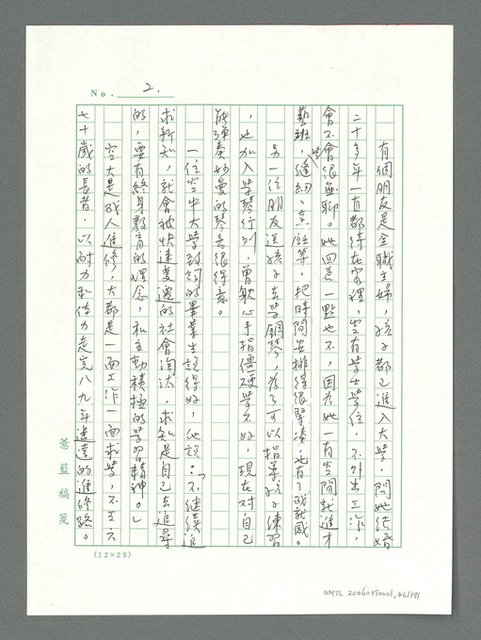 No. 2.
有個朋友是全職主婦，孩子都已進入大學，問她結婚
二十多年一直都待在家裡，空有學士學位，不外出工作，
會不會很無聊。她回答一點也不，因為她一有空閒就進才
藝班，學縫紉、烹飪等，把時間安排得很緊湊，也有了成就感。
另一位朋友送孩子去學鋼琴，為了可以指導孩子練習
，也加入學琴行列，曾歎心手指僵硬學不好，現在對自己
能彈奏妙曼的琴音很得意。
一位空中大學的畢業生說得好，他說：「不繼續追
求新知，就會被快速變遷的社會淘汰，求知是自己去追尋
的，要有終身教育的理念，和主動積極的學習精神。」
空大是成人進修，大都是一面工作一面求學，不乏六
七十歲的長者，以耐力和信力走完八九年遙遠的進修路。
薏藍稿箋
(12×25)
NMTL 20060390001, 46/191